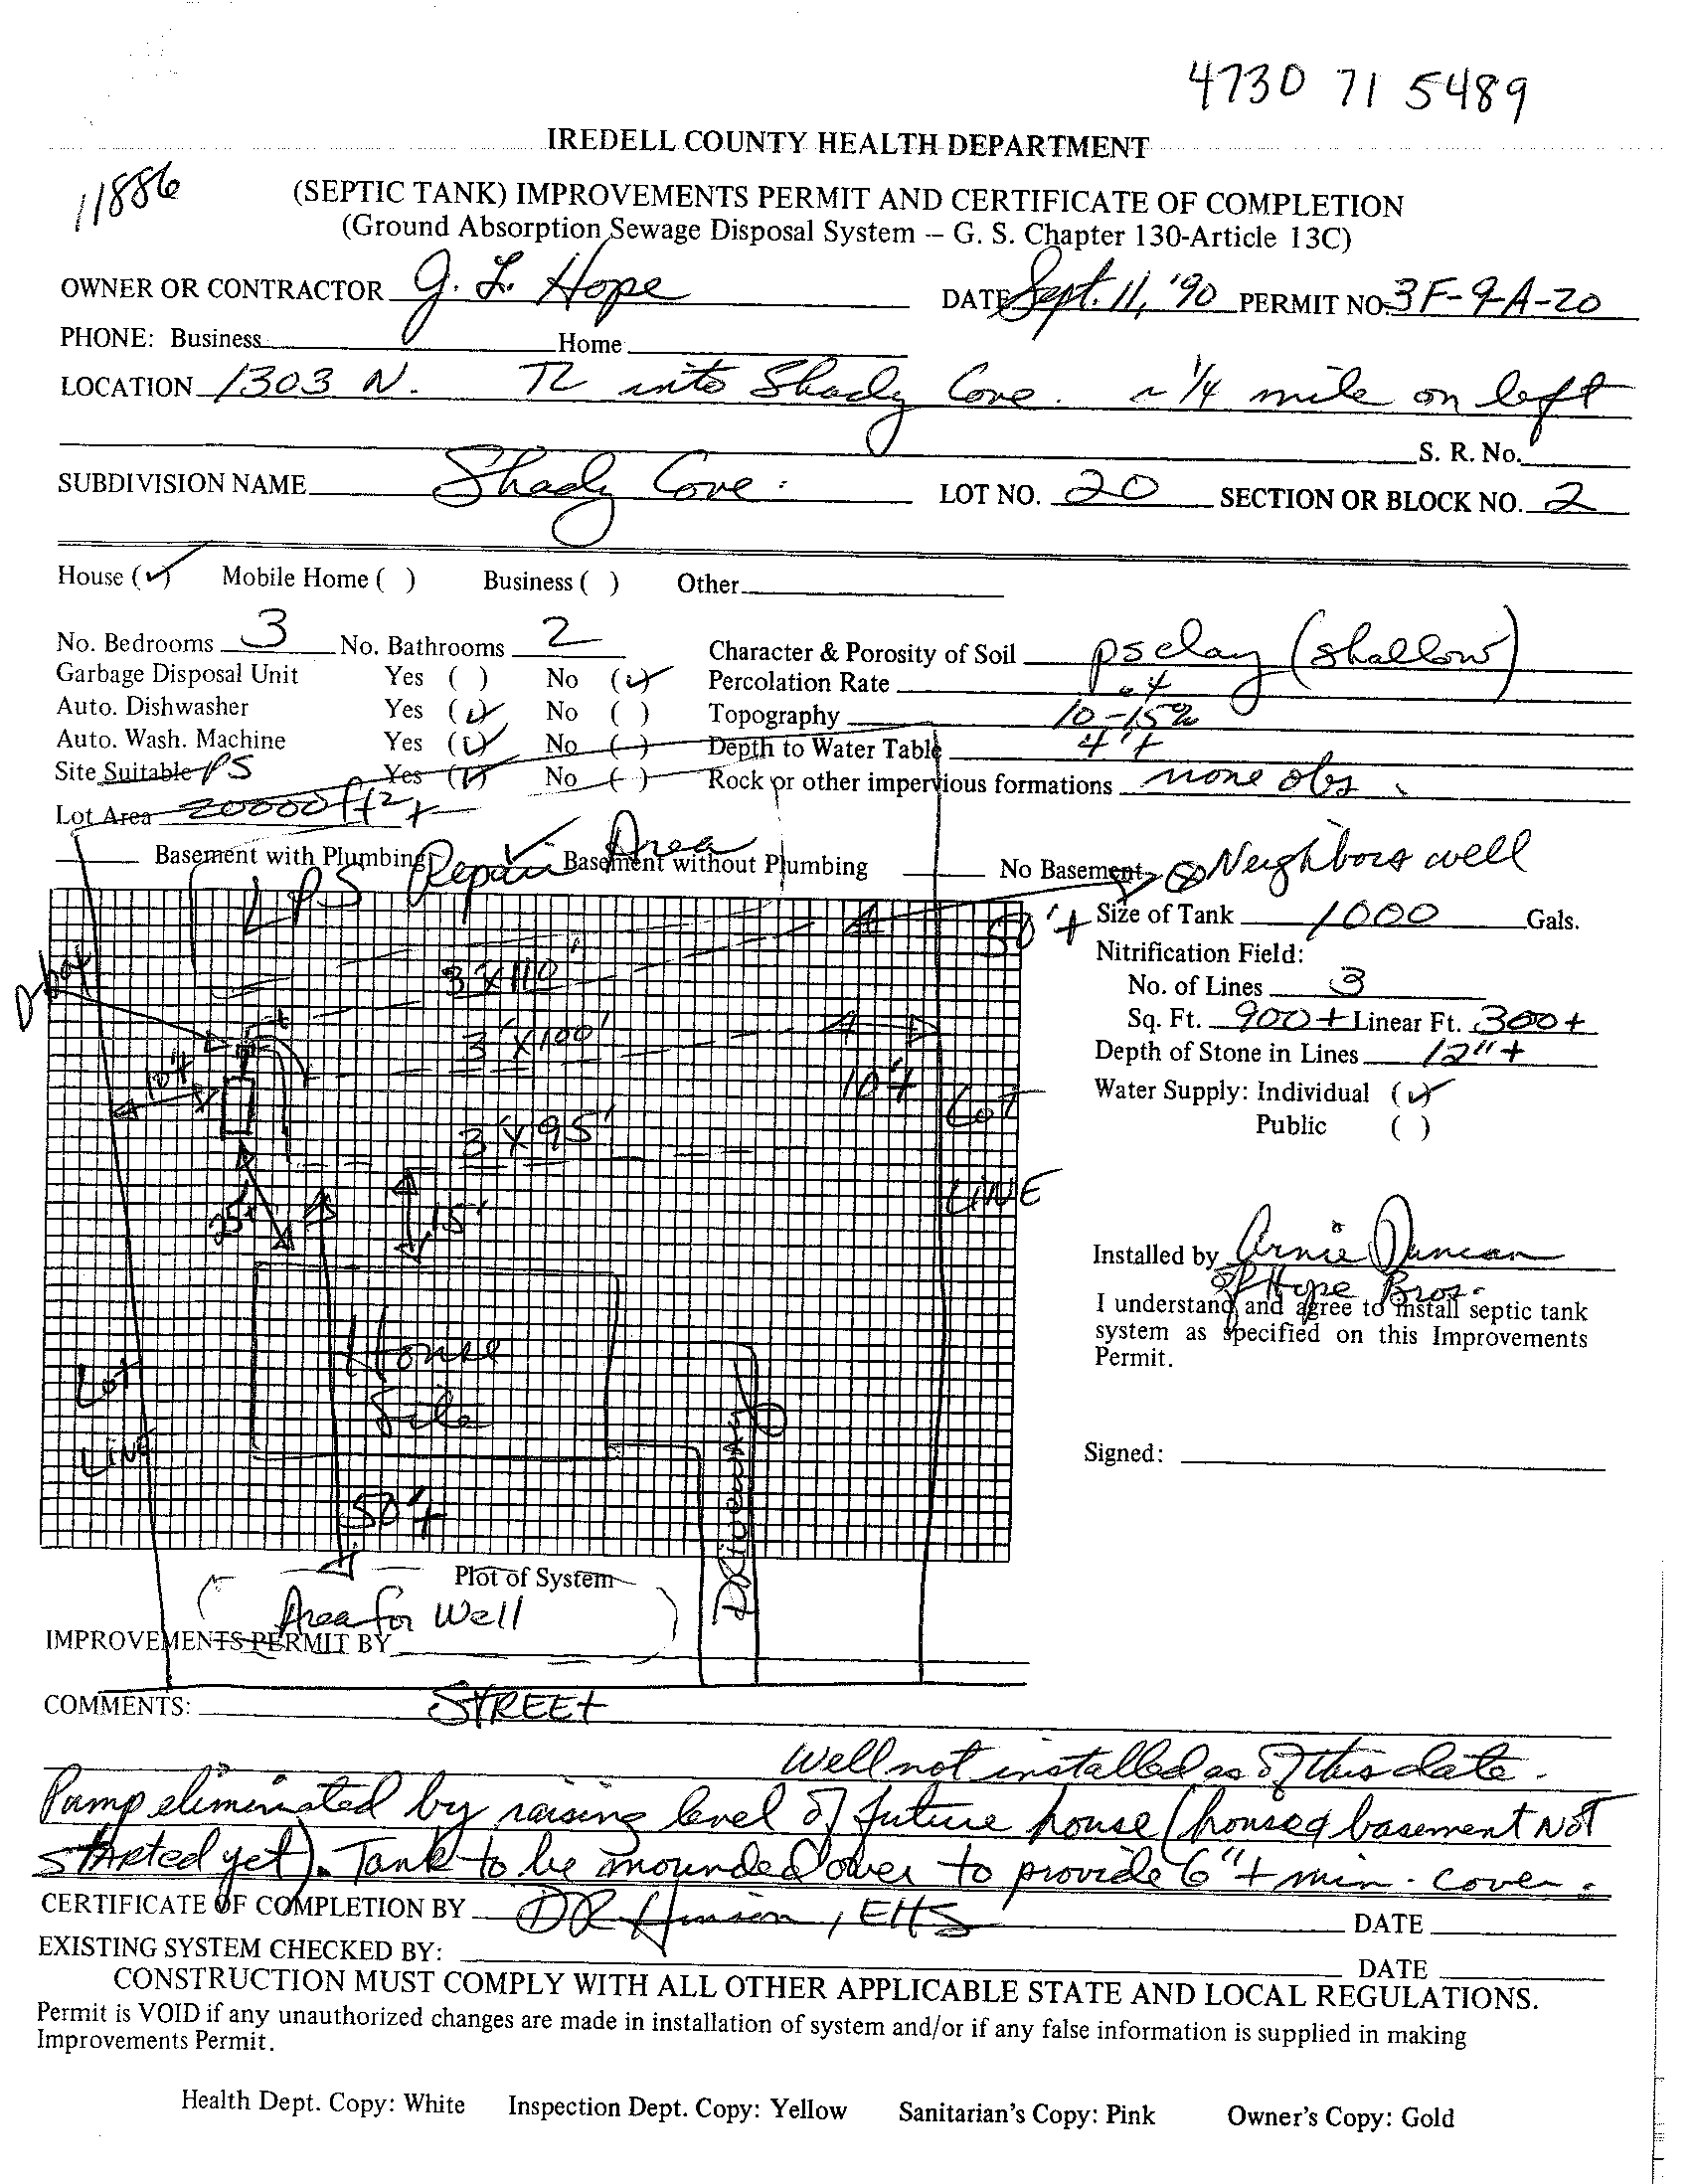 4730 71 5489
IREDELL COUNTY HEALTH DEPARTMENT
11886
(SEPTIC TANK) IMPROVEMENTS PERMIT AND CERTIFICATE OF COMPLETION
(Ground Absorption Sewage Disposal System – G. S. Chapter 130-Article 13C)
OWNER OR CONTRACTOR J. L. Hope DATE Sept. 11, '90 PERMIT NO. 3F-9-A-20
PHONE: Business Home
LOCATION 1303 N. TL into Shady Cove. ~ 1/4 mile on left
S. R. No.
SUBDIVISION NAME Shady Cove. LOT NO. 20 SECTION OR BLOCK NO. 2
House (✓) Mobile Home ( ) Business ( ) Other
No. Bedrooms 3 No. Bathrooms 2 Character & Porosity of Soil ps clay (shallow)
Garbage Disposal Unit Yes ( ) No (✓) Percolation Rate .4
Auto. Dishwasher Yes (✓) No ( ) Topography 10-15%
Auto. Wash. Machine Yes (✓) No ( ) Depth to Water Table 4'+
Site Suitable PS Yes (✓) No ( ) Rock or other impervious formations none obs.
Lot Area 20000 ft2+
Basement with Plumbing ✓ Basement without Plumbing No Basement
LPS Repair Area
⊗ Neighbors well
50'+
Size of Tank 1000 Gals.
Nitrification Field:
No. of Lines 3
Sq. Ft. 900+ Linear Ft. 300+
Depth of Stone in Lines 12"+
Water Supply: Individual (✓)
Public ( )
D-box
3'x110'
3'x100'
10'+
10'+
3'x95'
Lot
LINE
25'+
15'
House
Site
Lot
LINE
50'+
DRiveway
Installed by Arnie Duncan
of Hope Bros.
I understand and agree to install septic tank
system as specified on this Improvements
Permit.
Signed:
Plot of System
Area for Well
IMPROVEMENTS PERMIT BY
COMMENTS:
STREEt
Well not installed as of this date.
Pump eliminated by raising level of future house (house & basement Not
stARted yet). Tank to be mounded over to provide 6"+ min. cover.
CERTIFICATE OF COMPLETION BY DR Hinson, EHS DATE
EXISTING SYSTEM CHECKED BY: DATE
CONSTRUCTION MUST COMPLY WITH ALL OTHER APPLICABLE STATE AND LOCAL REGULATIONS.
Permit is VOID if any unauthorized changes are made in installation of system and/or if any false information is supplied in making
Improvements Permit.
Health Dept. Copy: White Inspection Dept. Copy: Yellow Sanitarian's Copy: Pink Owner's Copy: Gold